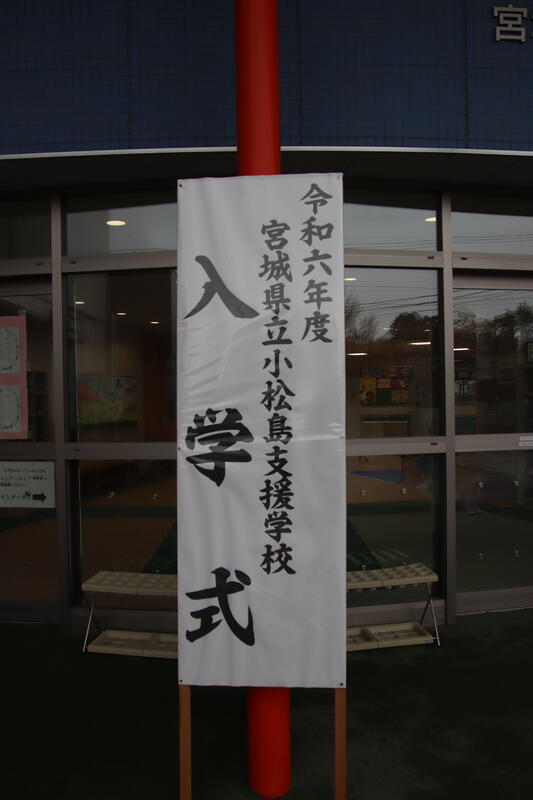 令和六年度
宮城県立小松島支援学校
入学式
宮
インター